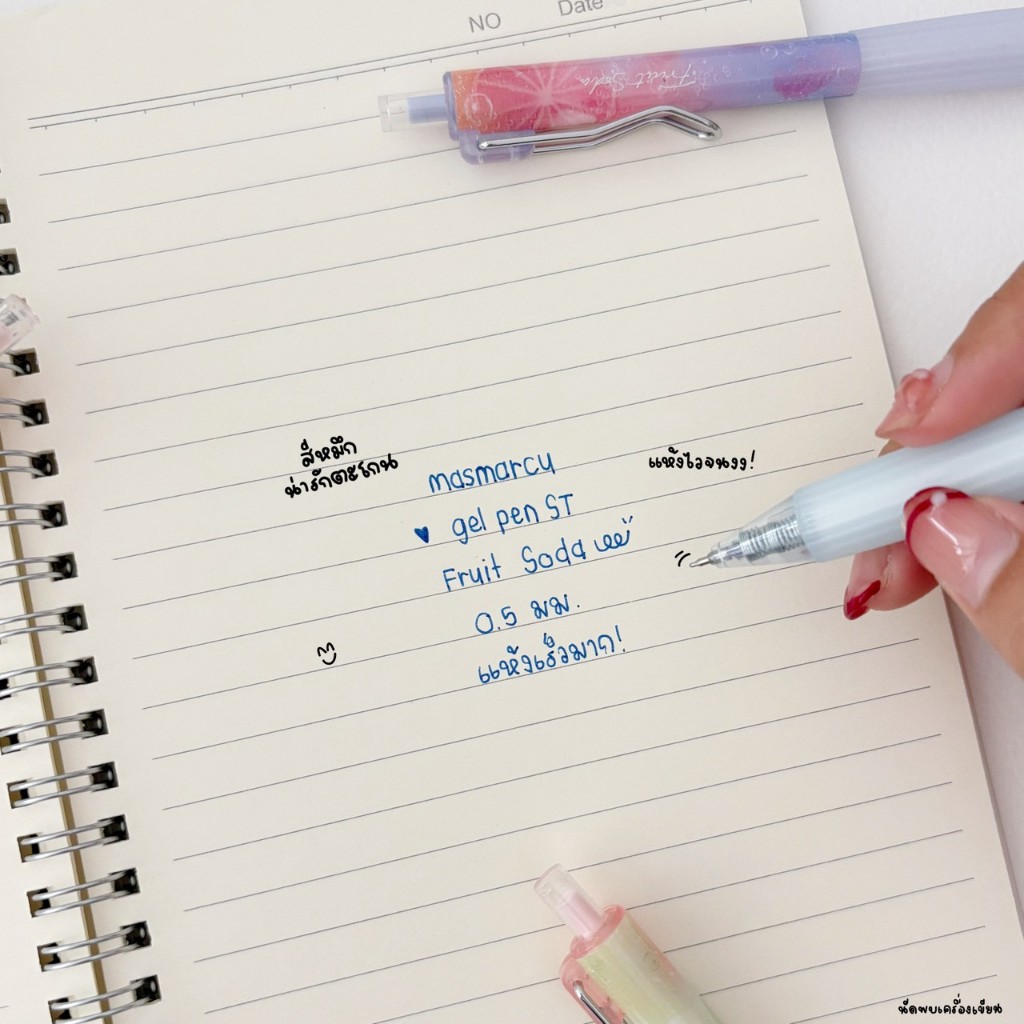 NO Date
Fruit Soda
สีหมึก
น่ารักตะโกน
masmarcu
gel pen ST
Fruit Soda
0.5 มม.
แห้งเร็วมาก!
แห้งไวจนงง!
นัดพบเครื่องเขียน